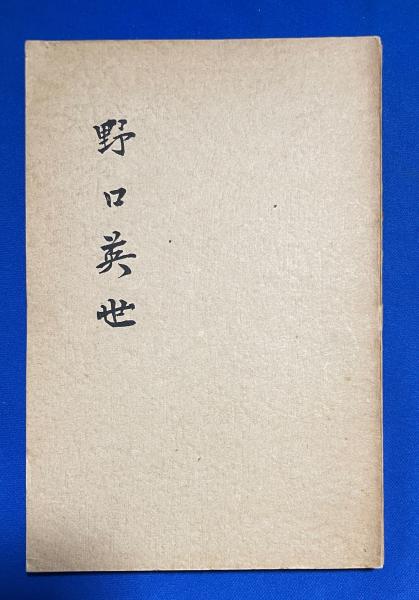 野口英世